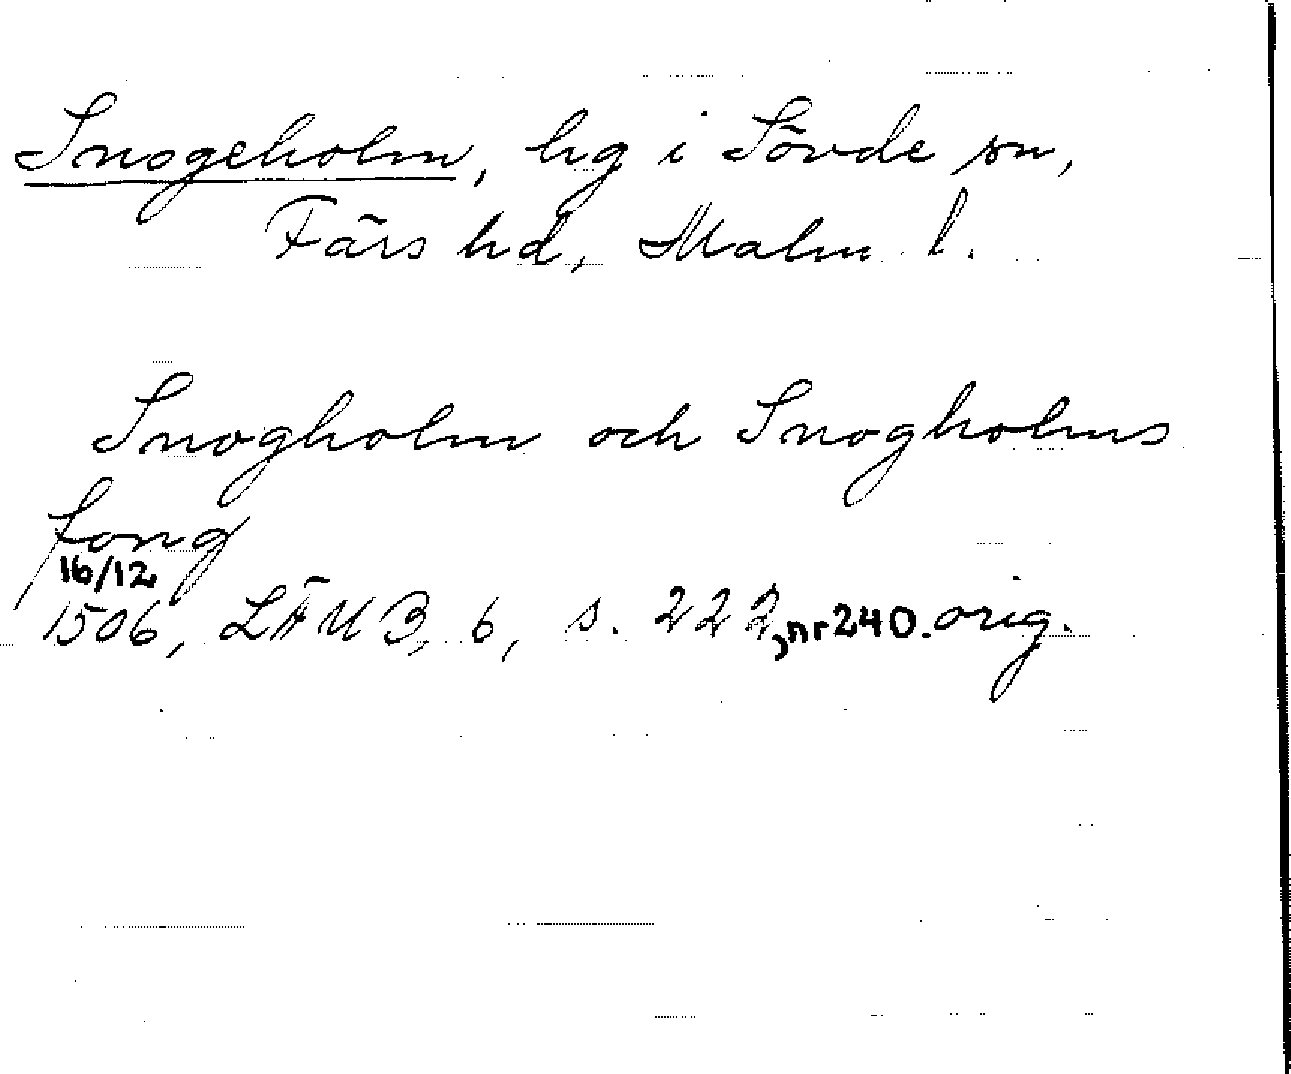 Snogeholm, hg i Sövde sn,
Färs hd, Malm. l.
Snogholm och Snogholms
fang
16/12
1506, LÄUB, 6, s. 222, nr 240. orig.